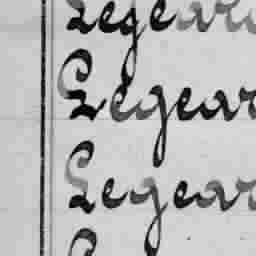 Legear
Legear
Legear